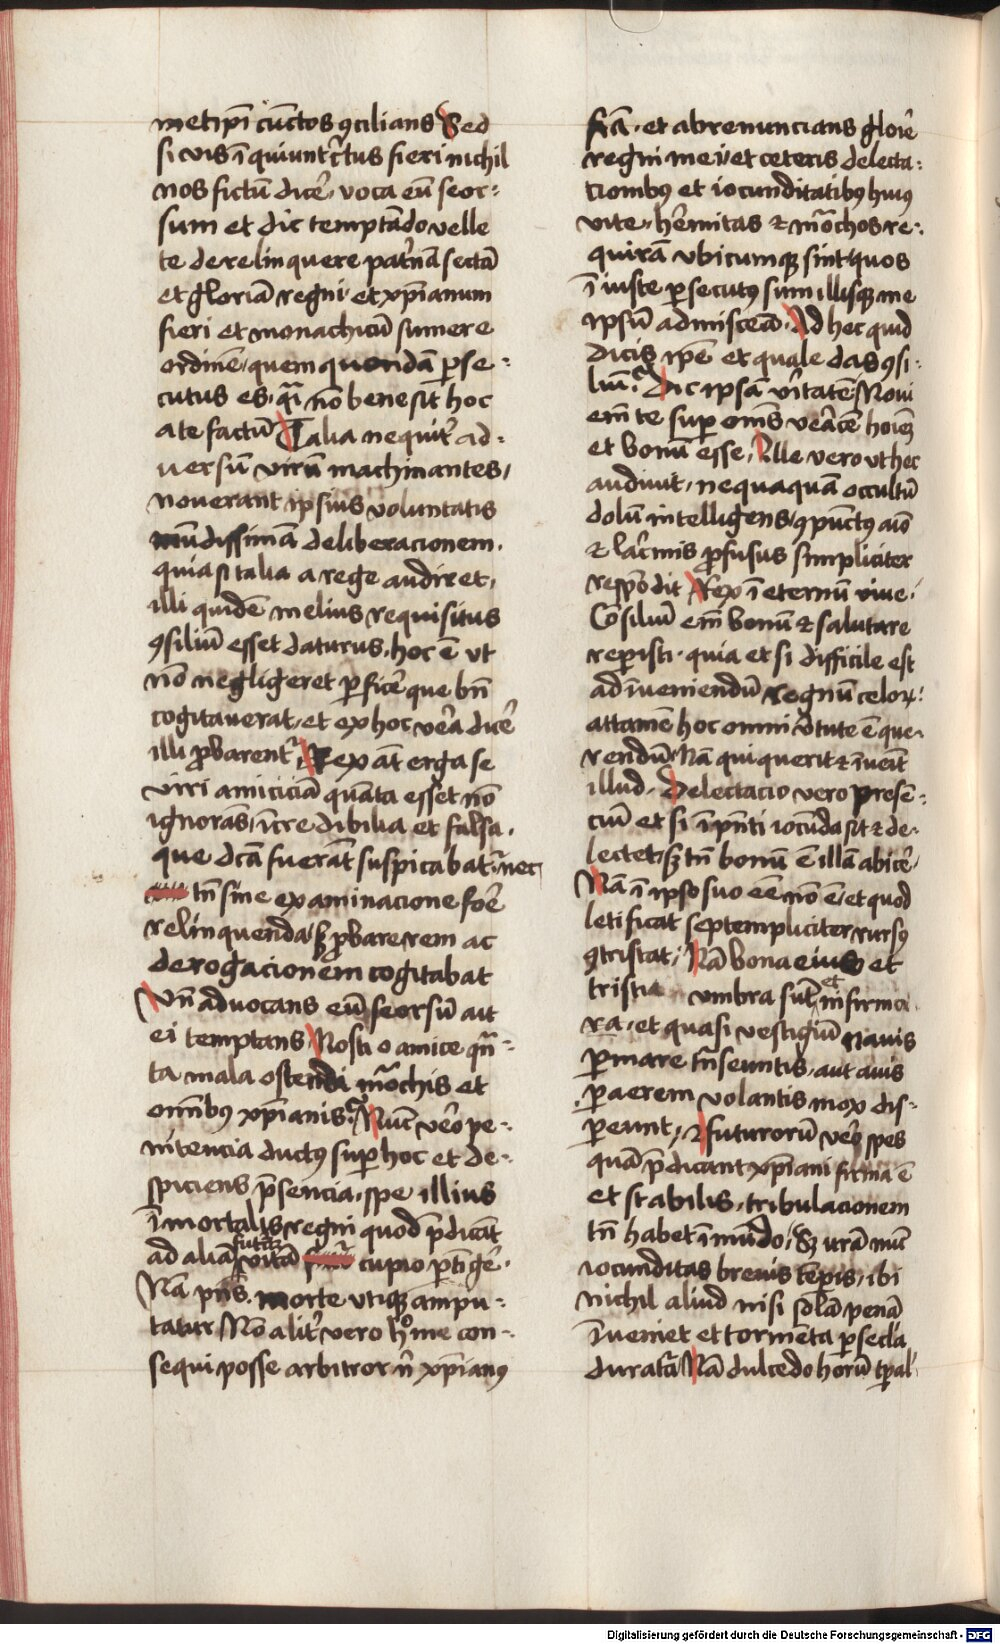 metip̄i cūctos ꝯcilians Sed
si vis īquiunt c̄tus fieri nichil
nos fictū dicē, voca eū seor:
sum et dic temptādo velle
te derelinquere patn̄ā sectā
et gloriā regni et xp̄ianum
fieri et monachicū sumere
ordinē, quem quondā ꝑse:
cutus es, qā nō bene sit hoc
a te factū Talia nequit̄ ad:
uersū virum machinantes,
nouerant ipsius voluntatis
mūdissimā deliberacionem.
quia si talia a rege audiret,
illi quidē melius requisitus
ꝯsiliū esset daturus, hoc ē vt
nō negligeret ꝑficē que bn̄
cogitauerat, et ex hoc veā dicē
illi ꝓbarent̄ Rex āt erga se
viri amiciciā quāta esset nō
ignorās, īcredibilia et falsa.
que dc̄a fuerāt suspicabat̄, nec
tn̄ sine examinacione foē
relinquenda, sꝫ ꝓbare rem ac
derogacionem cogitabat
Vn̄ aduocans eū seorsū ait
ei temptans Nosti o amice qn̄:
ta mala ostendi mōchis et
omībꝰ xp̄ianis. Nūc veō pe:
nitencia ductꝰ suꝑ hoc et de:
spiciens p̄sencia, spe illius
īmortalis regni quod p̄dicāt
ad aliā futurā vitā cupio ꝑtīgē.
Nā pn̄s. morte vtiqꝫ ampu:
tatur Nō alit̄ vero hº me con:
sequi posse arbitror n̄ xp̄ianꝰ
fiā. et abrenuncians gloē
regni mei, et ceteris delecta:
cionibꝰ et iocunditatibꝰ huiꝰ
vite, hēmitas ⁊ mōchos re:
quirā vbicumqꝫ sint, quos
īiuste ꝑsecutꝰ sum illisqꝫ me
ipsū admisceā. Ad hec quid
dicis ip̄e et quale das ꝯsi:
liū. Dic ipsā v̄itatē Noui
em̄ te suꝑ om̄s veācē hoiēꝫ
et bonū esse, Ille vero vt hec
audiuit, nequaquā occultū
dolū intelligens, ꝯpūctꝰ aīo
⁊ lac̄mis ꝓfusus simpliciter
respōdit Rex ī eternū viue.
Cōsiliū em̄ bonū ⁊ salutare
reꝑisti. quia et si difficile est
ad īueniendū regnū celoꝝ:
attamē hoc omni v̄tute ē que:
rendū Nā qui querit ⁊ īueīt
illud. Delectacio vero presē:
ciū et si ī pn̄ti iocūda sit ⁊ de:
lectet, sꝫ tn̄ bonū ē illā abicē.
Nā ī ipso suo eē nō ē, et quod
letificat septempliciter rursꝰ
ꝯtristat, Nā bona eius et
tristia vmbra sūt et infirmi
ra, et quasi vestigiū nauis
ꝑ mare tn̄seuntis, aut auis
ꝑ aerem volantis mox dis:
pereunt, ⁊ futurorū veō spes
quā p̄dicant xp̄iani firma ē
et stabilis, tribulacionem
tn̄ habet ī mūdo, sꝫ urā nūc
iocunditas breuis tēpis, ibi
nichil aliud nisi solā penā
īueniet et tormēta ꝑ secl̄a
duratā Nā dulcedo horū tꝑal
Digitalisierung gefördert durch die Deutsche Forschungsgemeinschaft - DFG